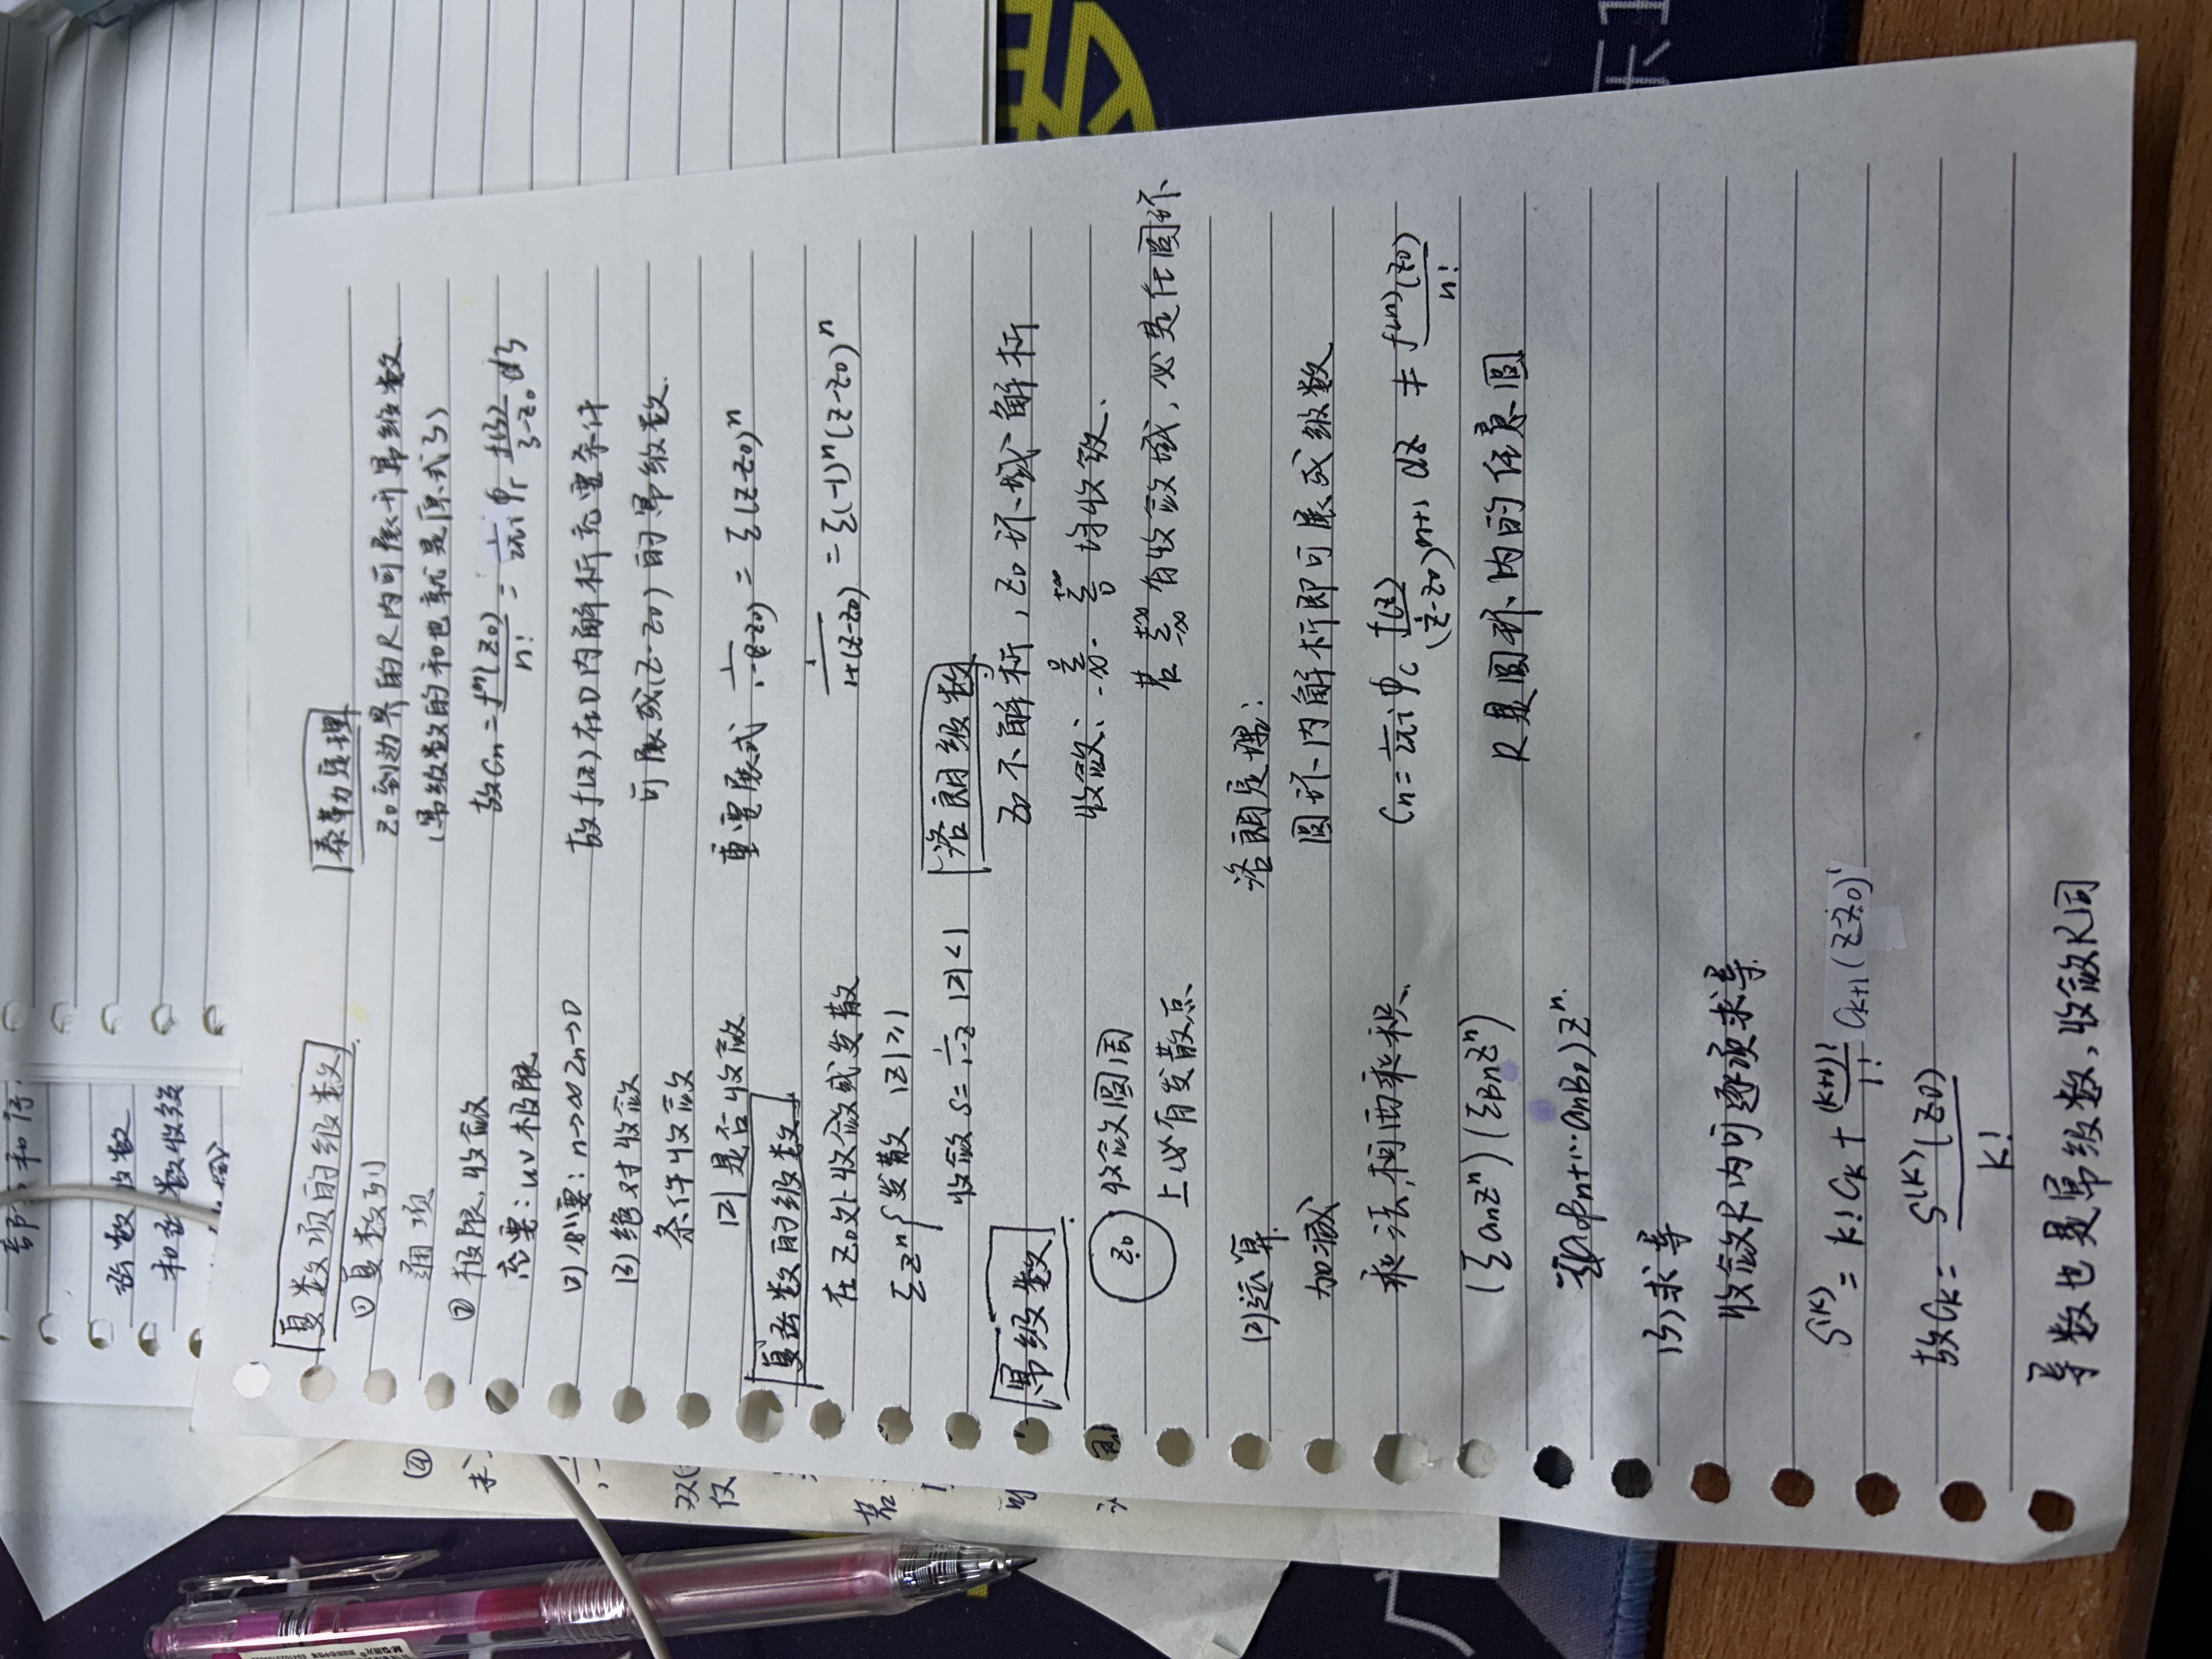 部 和 行
函数 级数
和函数收敛
域
④
双
仅
若
复数项的级数
① 复数列
通项
② 极限,收敛
充要: uv极限
(2) 必要: n→∞ Zn→0
(3) 绝对收敛
条件收敛
|Z| 是否收敛
复函数的级数
在 Z0 处收敛或发散
Σ Z^n { 发散 |Z| ≥ 1
收敛 S = 1/(1-Z) |Z| < 1
幂级数
Z0 收敛圆周
上必有发散点
(2) 运算
加减
乘法,柯西乘积
(Σ αnZ^n) (Σ βnZ^n)
= Σ(α0βn+…αnβ0) Z^n.
(3) 求导
收敛R内可逐项求导
S^(K) = k! CK + (K+1)!/1! CK+1 (Z-Z0)^1
故 CK = S^(K)(Z0)/K!
导数也是幂级数,收敛R同
泰勒定理
Z0 到边界的R内可展开幂级数
(幂级数的和也就是原式了)
故 Cn = f^n(Z0)/n! = 1/2πi ∮r f(ζ)/(ζ-Z0) dζ
故 f(Z) 在D内解析充要条件
可展成(Z-Z0) 的幂级数.
重要展式 1/(1-(Z-Z0)) = Σ (Z-Z0)^n
1/(1+(Z-Z0)) = Σ(-1)^n (Z-Z0)^n
洛朗级数
Z0 不解析, Z0 环域解析
收敛: Σ_{-∞}^{0} Σ_{0}^{+∞} 均收敛.
若 Σ_{-∞}^{+∞} 有收敛域, 必是在圆环
洛朗定理:
圆环内解析即可展成级数
Cn = 1/2πi ∮C f(Z)/(Z-Z0)^{n+1} dZ ≠ f^(n)(Z0)/n!
R是圆环内的任意圆
罗
广
乐1